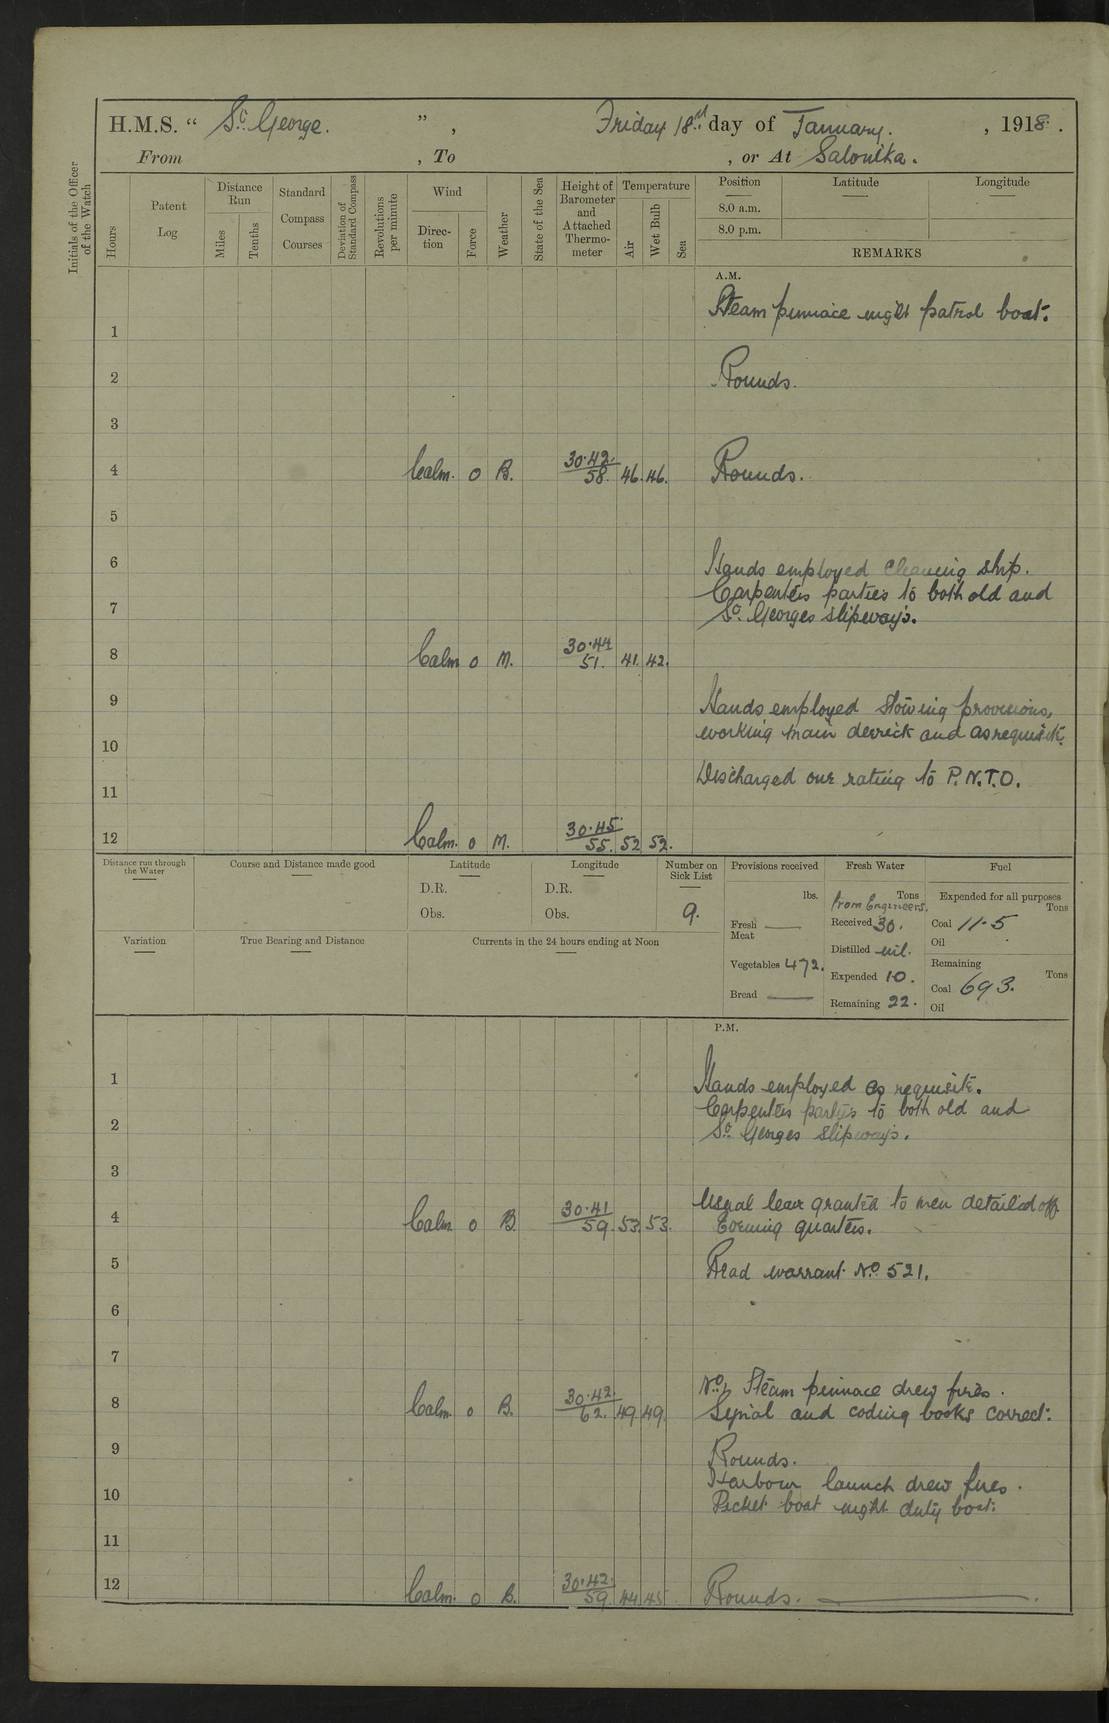 H.M.S. " St George. " , Friday 18th day of January. , 1918.
From , To , or At Salonika.
Initials of the Officer of the Watch
Hours
Patent Log
Distance Run
Miles
Tenths
Standard Compass Courses
Deviation of Standard Compass
Revolutions per minute
Wind
Direc-tion
Force
Weather
State of the Sea
Height of Barometer and Attached Thermo-meter
Temperature
Air
Wet Bulb
Sea
Position
Latitude
Longitude
8.0 a.m.
8.0 p.m.
REMARKS
A.M.
Steam pinnace night patrol boat.
1
2 Rounds.
3
4 Calm. 0 B. 30.42. 58. 46. 46. Rounds.
5
6 Hands employed cleaning ship.
Carpenters parties to both old and
7 St. Georges slipways.
8 Calm 0 M. 30.44 51. 41. 42.
9 Hands employed stowing provisions,
working main derrick and as requisite.
10
Discharged one rating to P.N.T.O.
11
12 Calm. 0 M. 30.45. 55. 52 52.
Distance run through the Water
Course and Distance made good
Latitude
D.R.
Obs.
Longitude
D.R.
Obs.
Number on Sick List
9.
Provisions received
lbs.
Fresh Meat —
Vegetables 472.
Bread —
Fresh Water
Tons
From Engineers.
Received 30.
Distilled nil.
Expended 10.
Remaining 22.
Fuel
Expended for all purposes
Tons
Coal 11.5
Oil
Remaining
Tons
Coal 693.
Oil
Variation
True Bearing and Distance
Currents in the 24 hours ending at Noon
P.M.
1 Hands employed as requisite.
Carpenters parties to both old and
2 St. Georges slipways.
3
4 Calm 0 B 30.41 59. 53. 53. Usual leave granted to men detailed off
Evening quarters.
5 Read warrant No. 521.
6
7
No 1 Steam pinnace drew fires.
8 Calm. 0 B. 30.42. 62. 49. 49. Signal and coding books correct.
9 Rounds.
Harbour launch drew fires.
10 Picket boat night duty boat.
11
12 Calm. 0 B. 30.42. 59 44 45 Rounds.